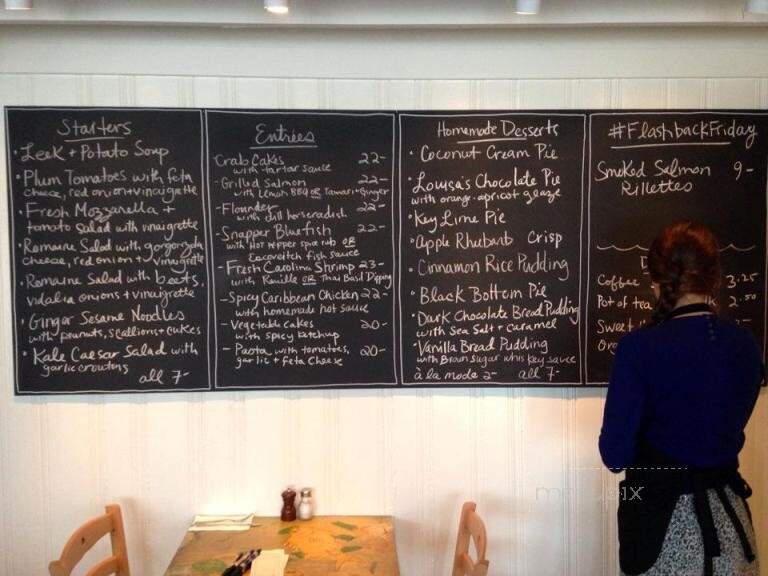 Starters
• Leek + Potato Soup
• Plum Tomatoes with feta
cheese, red onion + vinaigrette
• Fresh Mozzarella +
tomato Salad with vinaigrette
• Romaine Salad with gorgonzola
cheese, red onion + vinaigrette
• Romaine Salad with beets,
vidalia onions + vinaigrette
• Ginger Sesame Noodles
with peanuts, scallions + cukes
• Kale Caesar Salad with
garlic croutons
all 7-
Entrées
Crab Cakes 22-
with tartar sauce
- Grilled Salmon 22-
with Lemon BBQ OR Tamari-Ginger
- Flounder 22-
with dill horseradish
- Snapper Bluefish 22-
with Hot pepper spice rub OR
fish sauce
- Fresh Carolina Shrimp 23-
with OR Thai Basil Dipping
- Spicy Caribbean Chicken 22-
with homemade hot sauce
- Vegetable cakes 20-
with spicy ketchup
- Pasta, with tomatoes, 20-
garlic + feta cheese
Homemade Desserts
• Coconut Cream Pie
• Louisa's Chocolate Pie
with orange-apricot glaze
• Key Lime Pie
• Apple Rhubarb Crisp
• Cinnamon Rice Pudding
• Black Bottom Pie
• Dark Chocolate Bread Pudding
with Sea Salt + caramel
• Vanilla Bread Pudding
with Brown sugar whiskey sauce
à la mode 2- all 7-
#FlashbackFriday
Smoked Salmon 9-
Rillettes
Coffee 3.25
Pot of tea 2.50